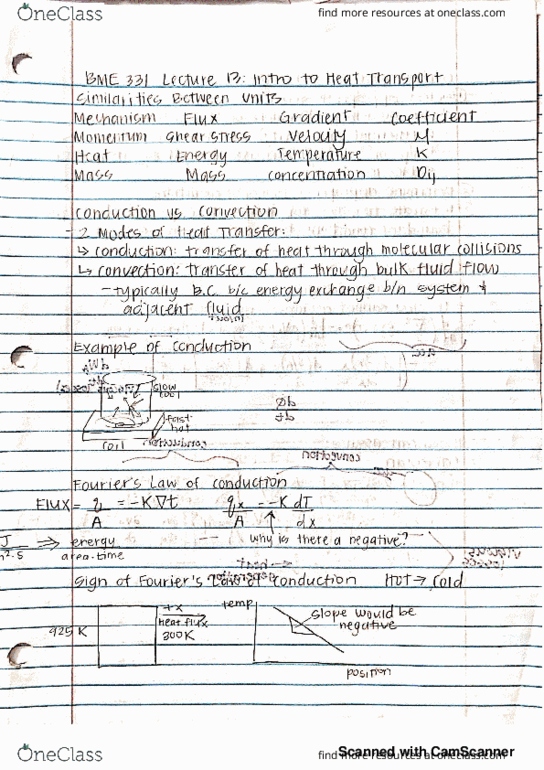 OneClass
find more resources at oneclass.com
BME 331 Lecture 13: Intro to Heat Transport
Similarities Between Units
Mechanism Flux Gradient Coefficient
Momentum Shear Stress Velocity M
Heat Energy Temperature K
Mass Mass concentration Dij
Conduction vs. Convection
- 2 Modes of Heat Transfer:
↳ conduction: transfer of heat through molecular collisions
↳ convection: transfer of heat through bulk fluid flow
- typically B.C. b/c energy exchange b/n system &
adjacent fluid
Example of Conduction
slow
cool
fast
hot
coil
Fourier's Law of conduction
Flux = q/A = -K∇t qx/A = -K dT/dx
J/m²·s ⇒ energy/area·time why is there a negative?
Sign of Fourier's Law of Conduction Hot → Cold
925 K
+x
heat flux
300K
temp
slope would be
negative
position
OneClass
find more resources at oneclass.com
Scanned with CamScanner